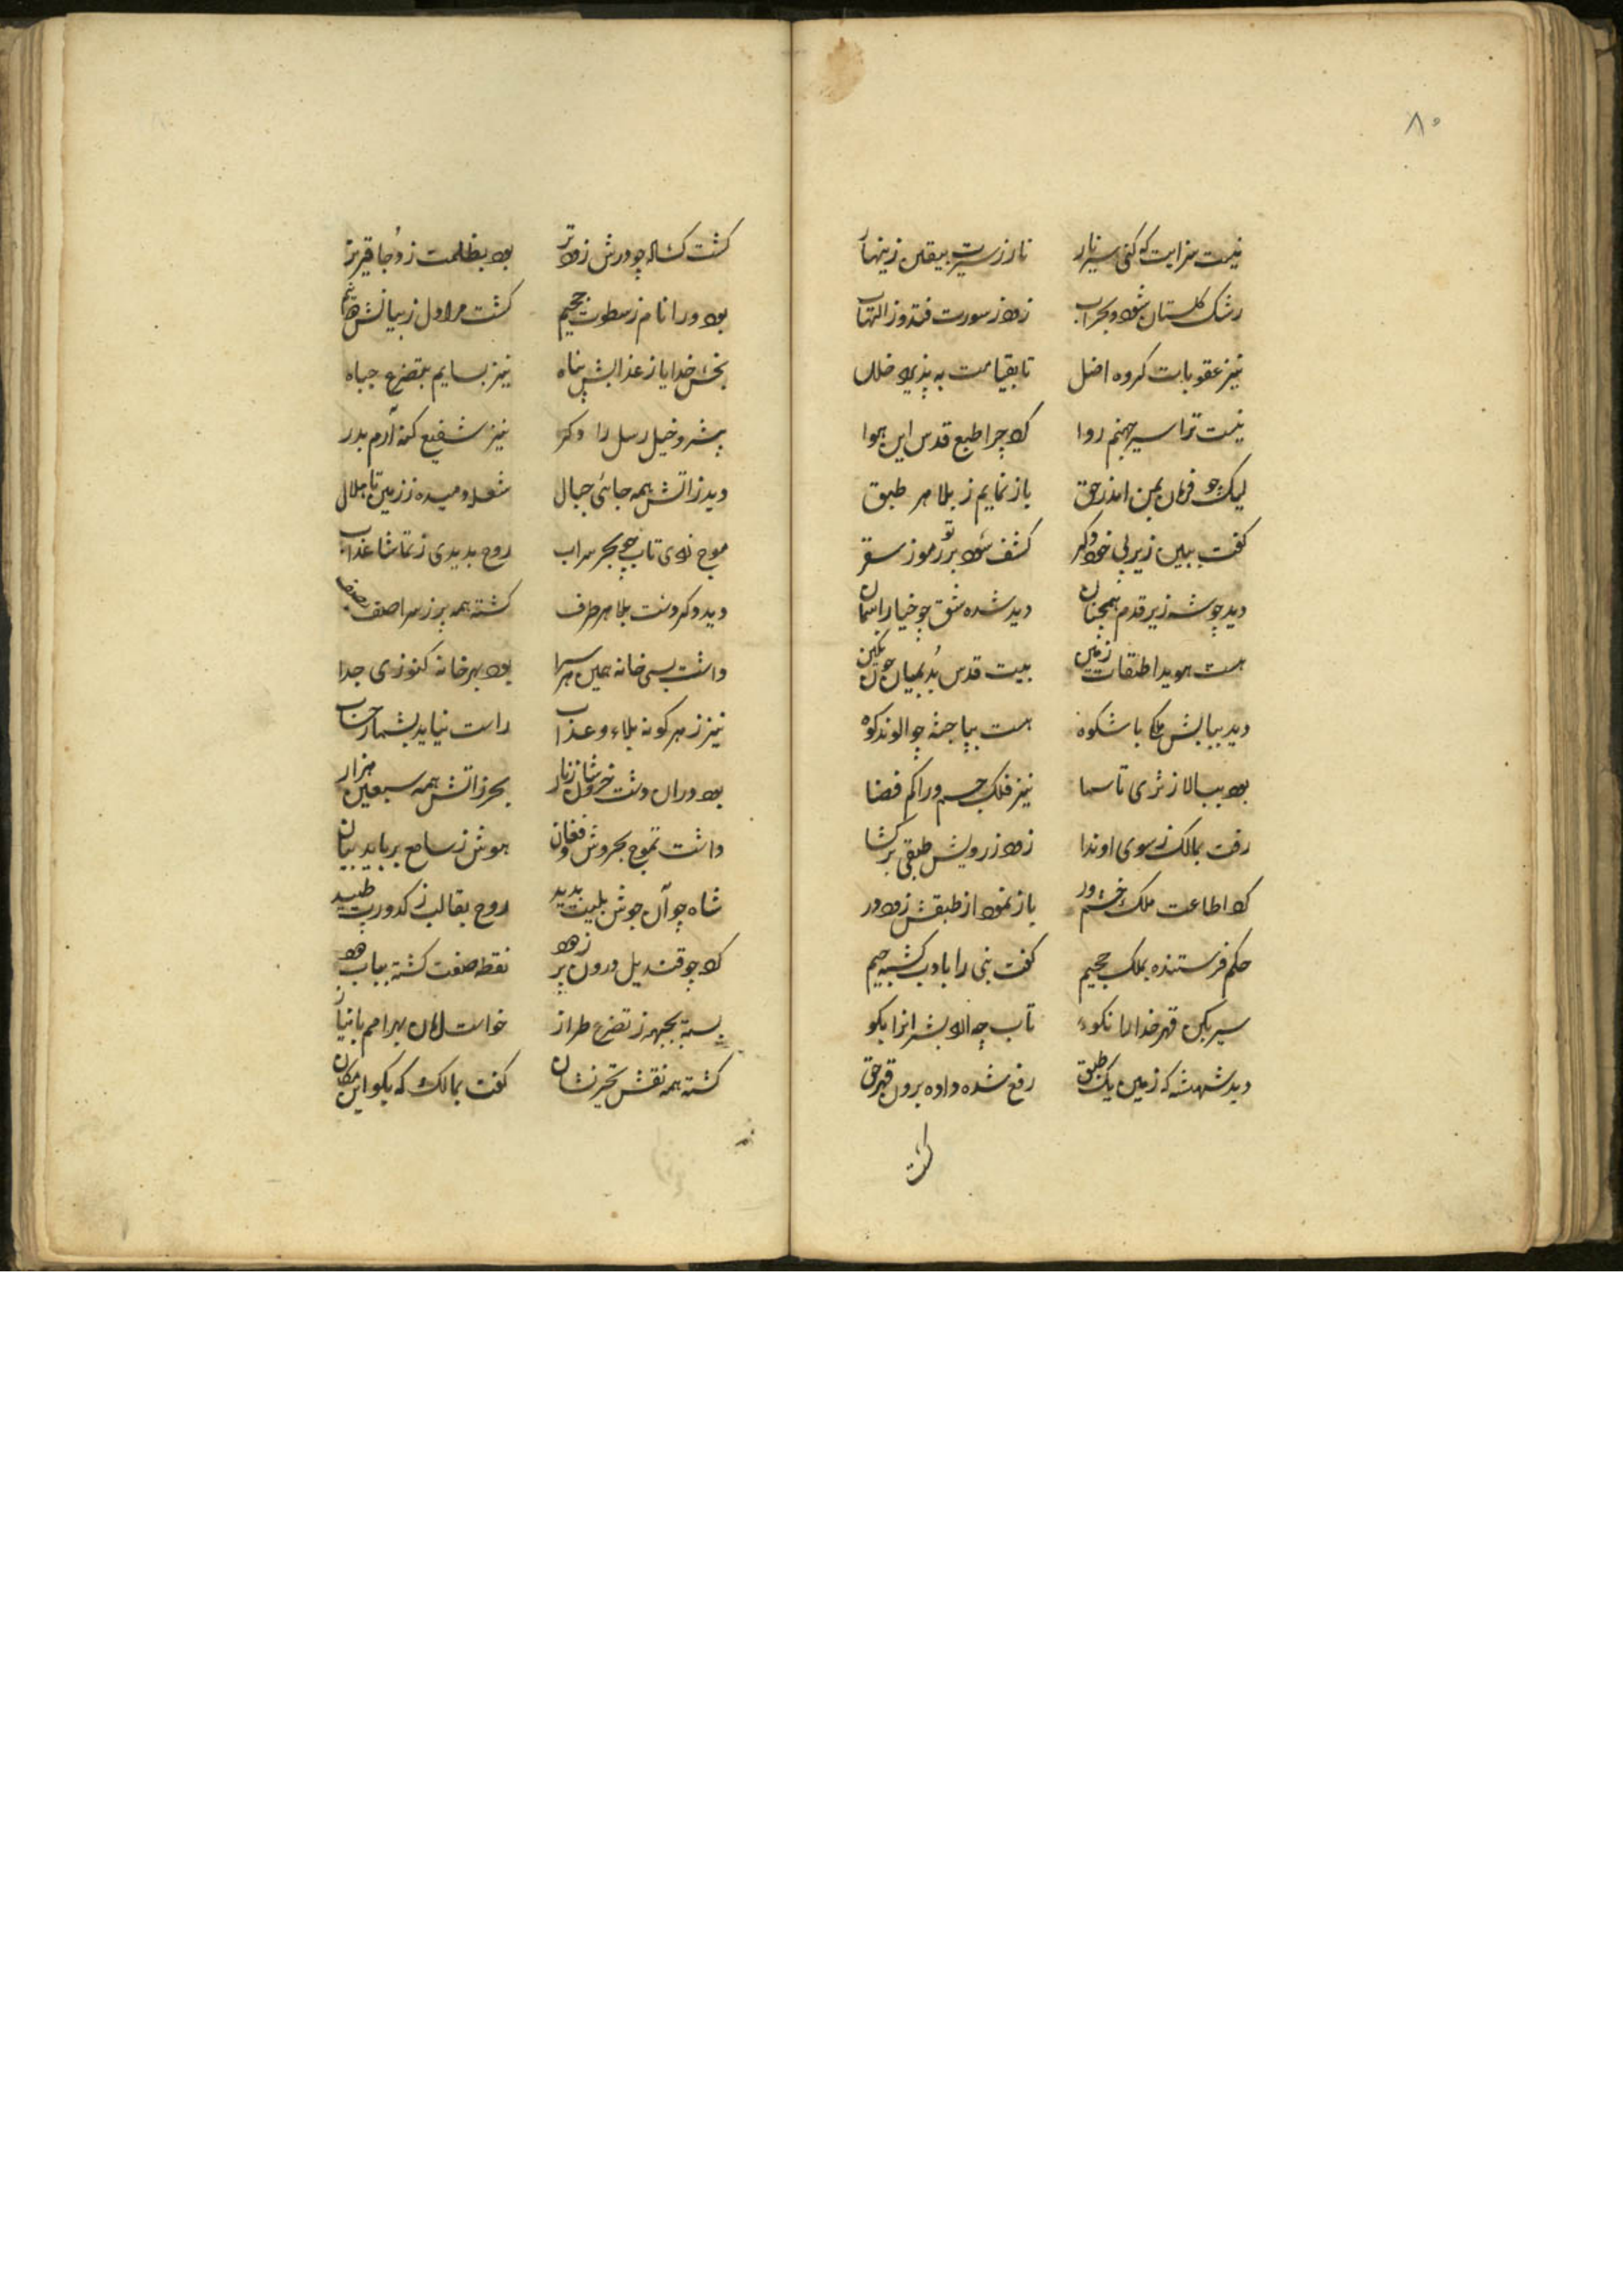 ۸۰
نیست سزایت که کنی سیر نار
نار ز سیرت بیقین زینهار
رشک گلستان شود و بحر آب
زود ز سورت فتد و ز التهاب
نیز عقوبات گروه اضل
تا بقیامت به پذیرد خلل
نیست ترا سیر جهنم روا
کرد چرا طبع قدس این هوا
لیک چو فرمان بمن آمد ز حق
باز نمایم ز بلا هر طبق
گفت ببین زیر پی خود دگر
کشف شود بر تو رموز سقر
دید چو شه زیر قدم همچنان
دید شده شق چو خیار آسمان
هست هویدا طبقات زمین
بیت قدس بد بمیان چون نگین
دید ببالش ملکی با شکوه
هست بپا جثه چو الوند کوه
بود ببالا ز ثری تا سما
نیز فلک جسم ورا کم فضا
رفت بمالک ز سوی او ندا
زود ز رویش طبقی بر گشا
کرد اطاعت ملک خشم ور
باز نمود از طبقش زود در
حکم فرستنده بملک جحیم
گفت نبی را بادب کشیه جیم
سیر بکن قهر خدا را نکوء
تاب چه آرد بشر آنرا بگو
دید شهنشه که زمین یک طبق
رفع شده داده برون قهر حق
گشت
گشت گشاده چو درش زودتر
بود بظلمت ز دجا قیرتر
بود ورا نام ز سطوت جحیم
گشت مرا دل ز بیانش
بخش خدایا ز عذابش پناه
نیز بسایم بتضرع جباه
پیشرو خیل رسل را دگر
نیز شفیع گنه آرم بدر
دید ز آتش همه جائی جبال
شعله دمیده ز زمین تا هلال
موج زدی تاب چو بحر سراب
روح بدیدی ز تماشا عذاب
دید دگر دشت بلا هر طرف
گشته همه پر ز سرا صف بصف
داشت بسی خانه همین هر سرا
بود بهر خانه کنوزی جدا
نیز ز هر گونه بلاء و عذاب
راست نیاید بشمار حساب
بود در آن دشت خروشان ز نار
بحر ز آتش همه سبعین هزار
داشت تموج بخروش و فغان
هوش ز سامع برباید بیان
شاه چو آن جوش بلیت بدید
روح بقالب ز کدورت طپید
کرد چو قندیل درون پر ز هو
نقطه صفت گشته بباب هو
بسته بجبهه ز تضرع طراز
خواست امان بهر امم با نیاز
گشته همه نقش تحیر نشان
گفت بمالک که بگو این مکان